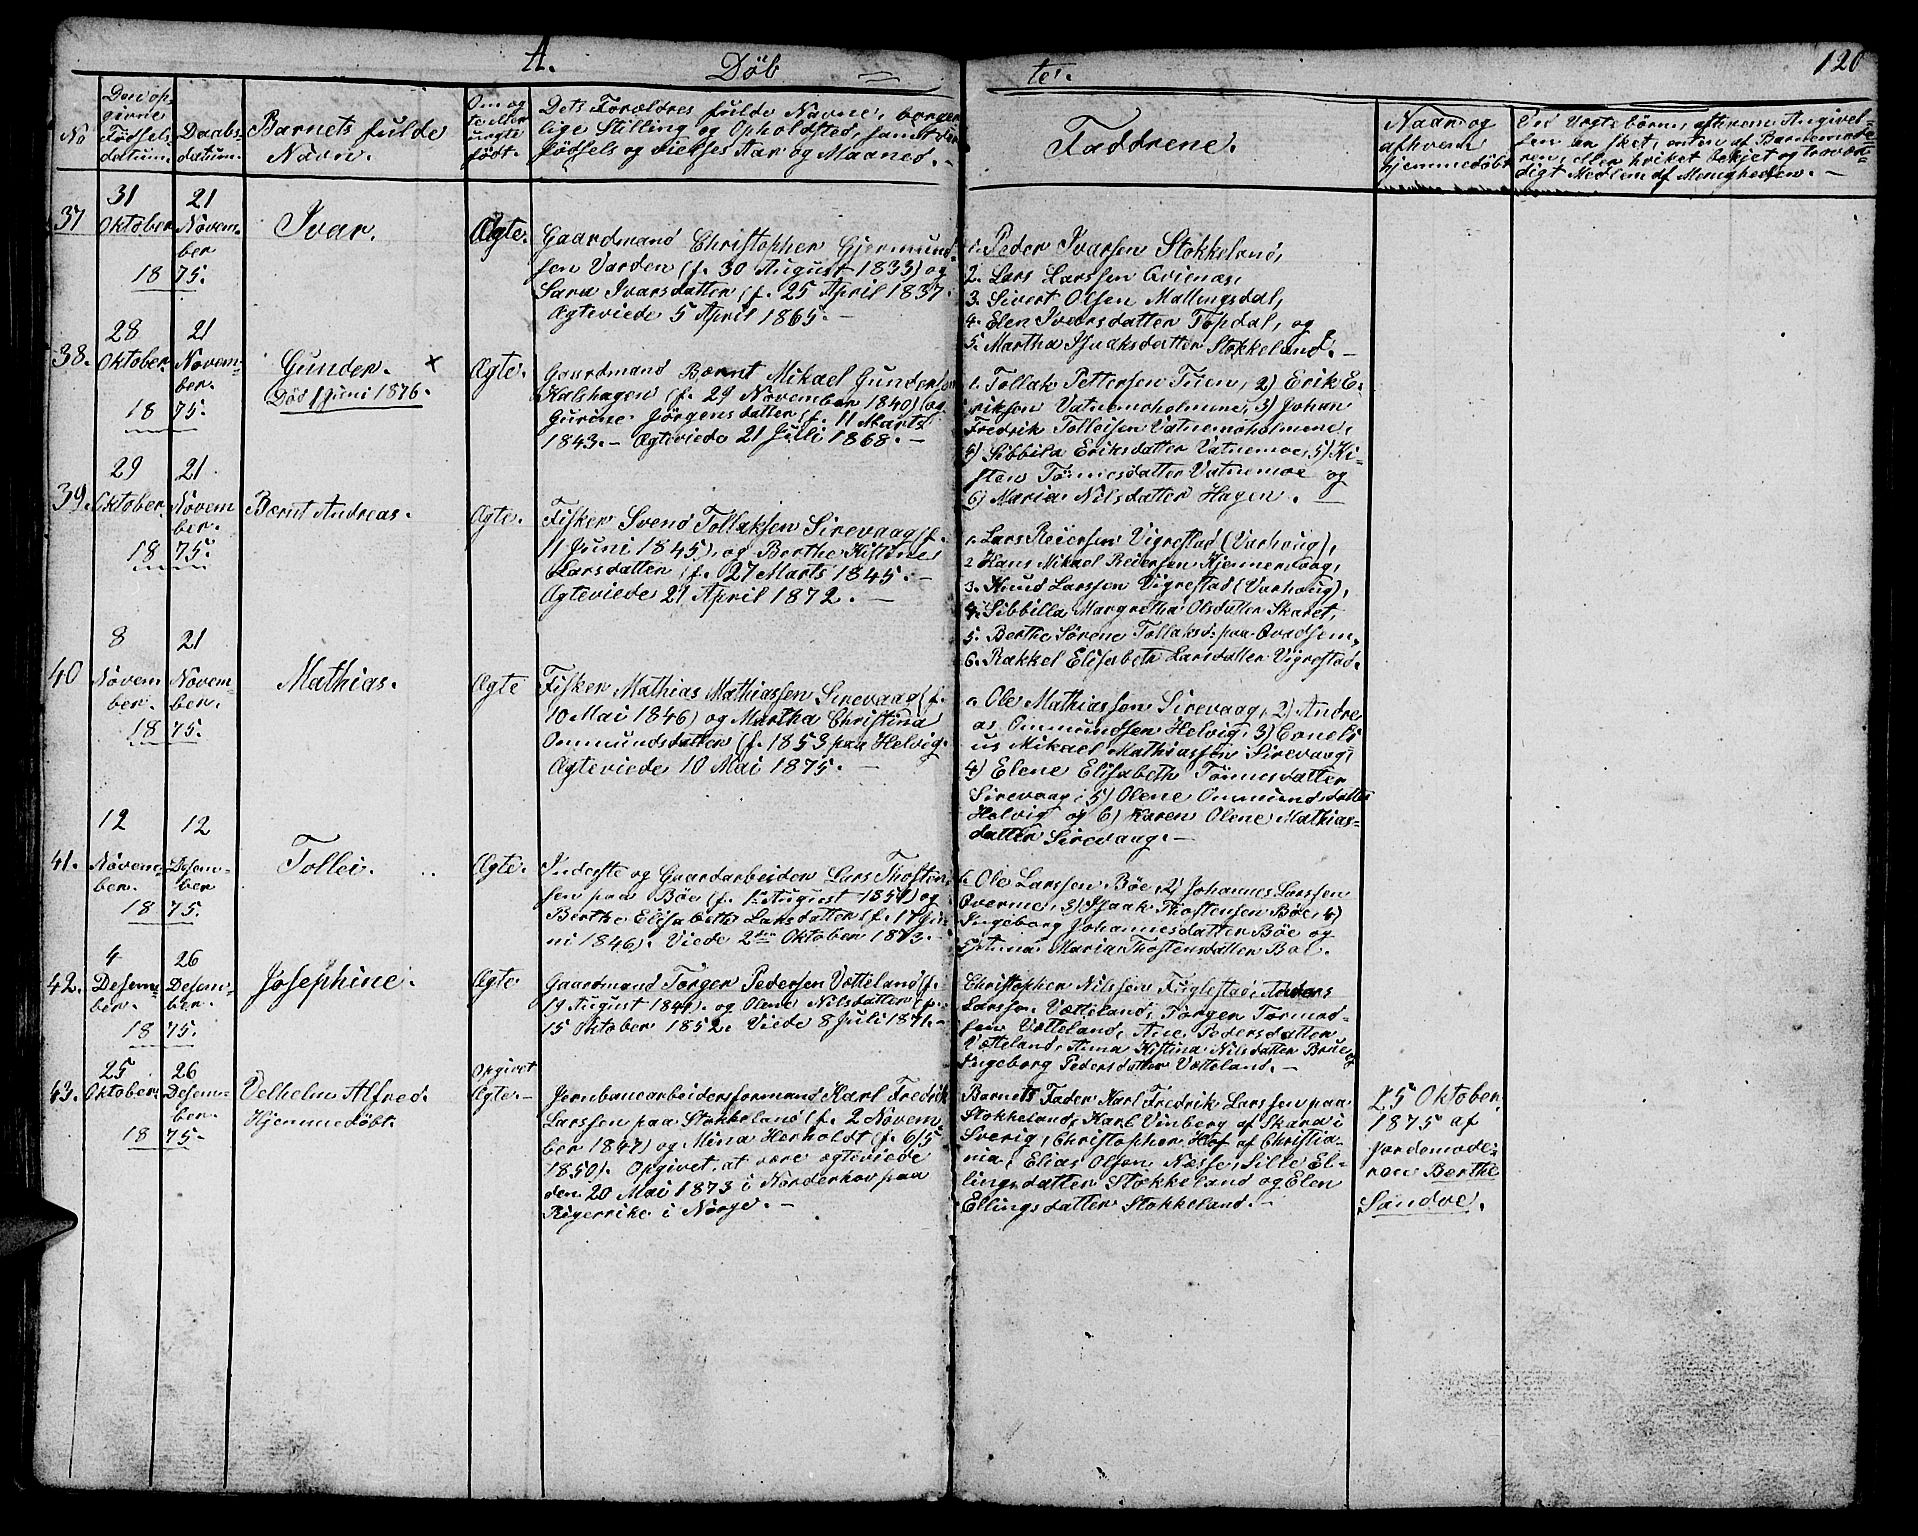 A.
Döb
te.
120
No
Den op-
givne
Födsels-
datum.
Daabs-
datum.
Barnets fulde
Navn.
Om æg
te eller
uægte
födt.
Dets Forældres fulde Navne, borger
lige Stilling og Opholdsted, samt der
Födsels og Vielses Aar og Maaned. -
Faddrene.
Naar og
af hvem
hjemmedöbt
Ved Uægte börn, af hvem Angivel-
sen er sket, enten af Barnemode-
ren, eller hvilket bekjet og trovær-
digt Medlem af Menigheden. -
37
31
Oktober
21
Novem-
ber
18 75.
Ivar.
Ægte.
Gaardmand Christopher Gjermund-
sen Varden (f. 30 August 1833) og
Sara Ivarsdatter (f. 25 April 1837.
Ægteviede 5 April 1865. -
1. Peder Ivarsen Stokkeland,
2. Lars Larssen Qvienas,
3. Sivert Olsen Mallingsdal,
4. Elen Ivarsdatter Topdal, og
5. Martha Isaaksdatter Stokkeland. -
38.
28
Oktober
21
Novem-
ber.
18 75.
Gunder. x
Död 1 Juni 1876.
Ægte.
Gaardmand Bærnt Mikael Gunders
Kalshagen (f. 29 November 1840) og
Gurine Jörgensdatter (f. 11 Marts
1843. - Ægteviede 21 Juli 1868. -
1. Tollak Pettersen Tuen, 2) Erik E-
riksen Vatnemoholmene, 3) Johan
Fredrik Tolleisen Vatnemoholmene,
4) Sibbila Eriksdatter Vatnemoe, 5) Ki-
sten Tönnesdatter Vatnemoe og
6) Maria Nilsdatter Hagen. -
39.
29
Oktober
21
Novem
ber.
18 75.
Bærnt Andreas.
Ægte.
Fisker Svend Tollaksen Sirevaag (f.
11 Juni 1845), og Berthe Kistine
Larsdatter (f. 27 Marts 1845. -
Ægteviede 21 April 1872. -
1. Lars Reiersen Vigrestad (Varhoug),
2 Hans Mikael Redersen
3. Knud Larssen Vigrestad (Varhoug),
4. Sibbilla Margretha Olsdatter Skaret,
5. Berthe Sörene Tollaksd. paa
6. Rakkel Elisabeth Larsdatter Vigrestad.
40
8
Novem
ber.
21
Novem-
ber.
18 75.
Mathias.
Ægte
Fisker Mathias Mathiassen Sirevaag (f.
10 Mai 1846) og Martha Christina
Ommundsdatter (f. 1853 paa Helvig.
Ægteviede 10 Mai 1875. -
Ole Mathiassen Sirevaag, 2) Andre
as Ommundssen Helvig, 3) Coneli
us Mikael Mathiassen Sirevaag,
4) Elene Elisabeth Tönnesdatter
Sirevaag, 5) Olene Ommundsdatter
Helvig og 6) Karen Olene Mathias-
datter Sirevaag. -
41.
12
Novem-
ber.
12
Desem-
ber
18 75.
Tollei.
Ægte.
Inderste og Gaardarbeider Lars Thosten
sen paa Böe (f. 1. August 1851) og
Berthe Elisabeth Larsdatter (f. 17 Ju-
ni 1846). Viede 2den Oktober 1873. -
1. Ole Larssen Böe, 2) Johannes Larssen
3) Isaak Thostensen Böe, 4)
Ingeborg Johannesdatter Böe og
Maria Thostensdatter Böe.
42.
4
Desem-
ber.
26
Desem-
ber.
18 75.
Josephine.
Ægte
Gaardmand Torger Pedersen Vætteland (f.
19 August 1844). og Olene Nilsdatter (f.
15 Oktober 1852. Viede 8 Juli 1871. -
Christopher Nilssen Fuglestad, Anders
Larsson Vætteland, Torger Tormod-
sen Vætteland, Ane Pedersdatter
Vætteland, Anna Kistina Nilsdatter Brue og
Ingeborg Pedersdatter Vætteland. -
43.
25
Oktober
26
Desem-
ber.
18 75.
Velhelm Alfred.
Hjemmedöbt.
Opgivet
Ægte. -
Jernbanearbeidersformand Karl Fredrik
Larssen paa Stokkeland (f. 2 Novem
ber 1847) og Mina Herholdt (f. 6/5
1850). Opgivet at være ægteviede
den 20 Mai 1873 i Norderhov paa
Rigerrike i Norge. -
Barnets Fader Karl Fredrik Larssen paa
Stokkeland, Karl Vinberg af Skara i
Sverig, Christopher Hof af Christia-
nia, Elias Olsen Næsse, Sille El-
lingsdatter Stokkeland og Elen
Ellingsdatter Stokkeland. -
25 Oktober
1875 af
Jordemode-
ren Berthe
Sandve.